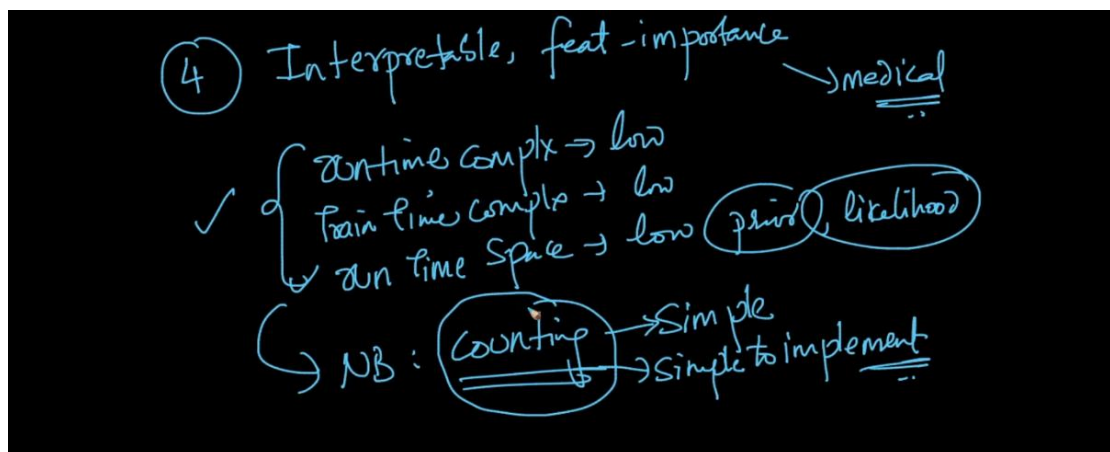 4 Interpretable, feat-importance
→ medical
runtime complx → low
Train time comple → low
run time space → low prior, likelihood
→ NB : counting → simple
→ simple to implement